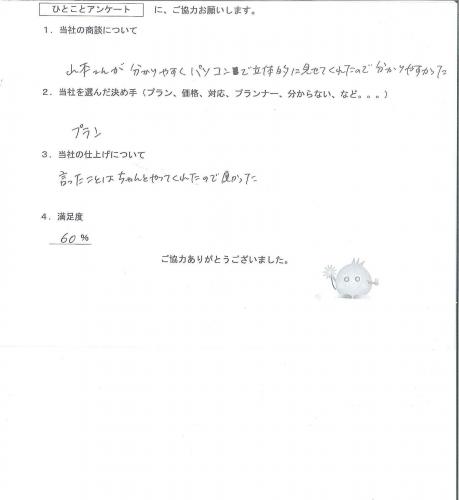 ひとことアンケート に、ご協力お願いします。
1．当社の商談について
山本さんが 分かりやすくパソコンで立体的に見せてくれたので分かりやすかった
2．当社を選んだ決め手（プラン、価格、対応、プランナー、分からない、など。。。）
プラン
3．当社の仕上げについて
言ったことはちゃんとやってくれたので良かった
4．満足度
60 %
ご協力ありがとうございました。